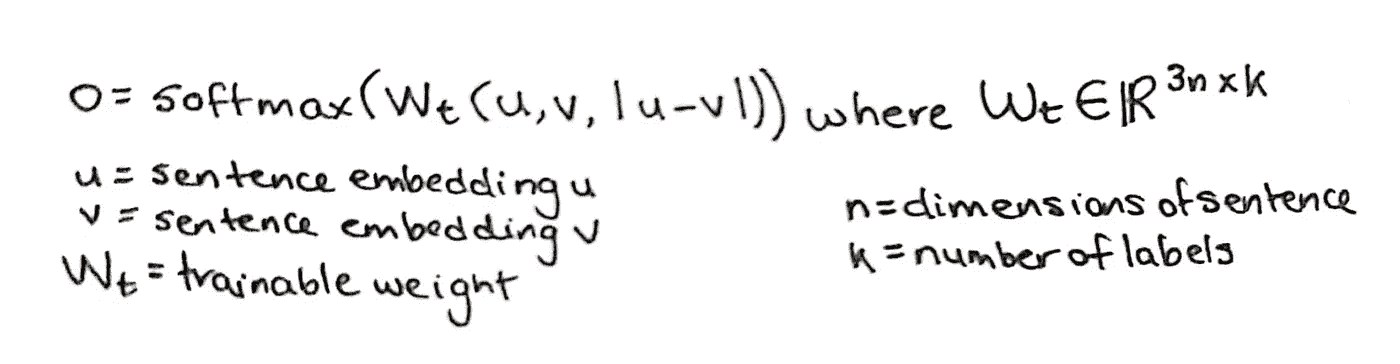 o = softmax(Wt(u, v, |u-v|)) where Wt ∈ ℝ^3n×k
u = sentence embedding u
v = sentence embedding v
Wt = trainable weight
n = dimensions of sentence
k = number of labels